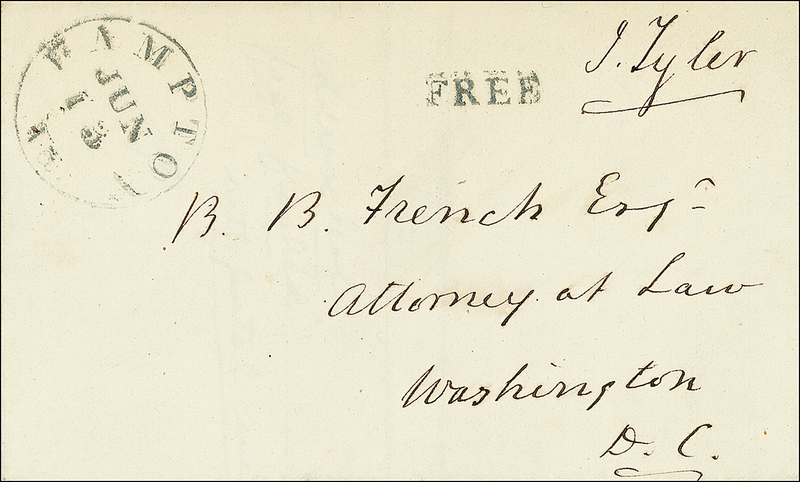 HAMPTON
JUN
13
FREE
J. Tyler
B. B. French Esqr
Attorney at Law
Washington
D. C.